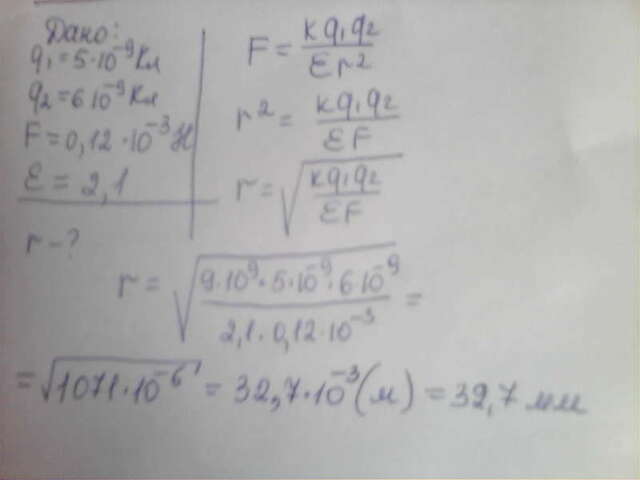 Дано:
q₁ = 5·10⁻⁹ Кл
q₂ = 6 10⁻⁹ Кл
F = 0,12·10⁻³ Н
ε = 2,1
r – ?
F = kq₁q₂/εr²
r² = kq₁q₂/εF
r = √(kq₁q₂/εF)
r = √(9·10⁹·5·10⁻⁹·6·10⁻⁹/2,1·0,12·10⁻³) =
= √(1071·10⁻⁶) = 32,7·10⁻³ (м) = 32,7 мм